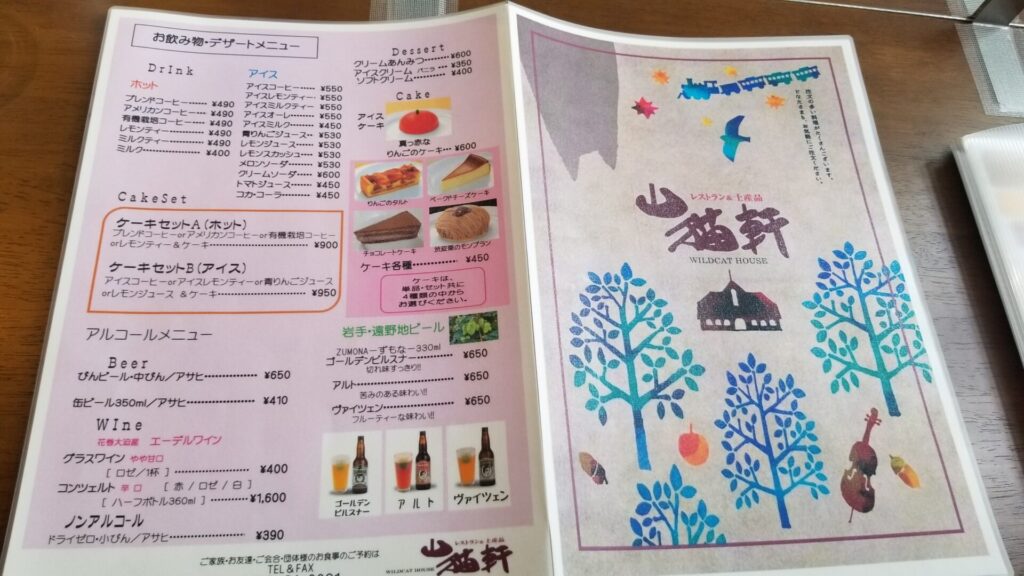 お飲み物・デザートメニュー
Drink
ホット
ブレンドコーヒー ¥490
アメリカンコーヒー ¥490
有機栽培コーヒー ¥490
レモンティー ¥490
ミルクティー ¥490
ミルク ¥400
アイス
アイスコーヒー ¥550
アイスレモンティー ¥550
アイスミルクティー ¥550
アイスオーレ ¥550
アイスミルク ¥450
青りんごジュース ¥530
レモンジュース ¥530
レモンスカッシュ ¥530
メロンソーダ ¥530
クリームソーダ ¥600
トマトジュース ¥450
コカ・コーラ ¥450
CakeSet
ケーキセットA(ホット)
ブレンドコーヒーorアメリカンコーヒーor有機栽培コーヒー
orレモンティー&ケーキ ¥900
ケーキセットB(アイス)
アイスコーヒーorアイスレモンティーor青りんごジュース
orレモンジュース &ケーキ ¥950
アルコールメニュー
Beer
びんビール・中びん/アサヒ ¥650
缶ビール350ml/アサヒ ¥410
WIne
花巻大迫産 エーデルワイン
グラスワイン やや甘口
[ ロゼ/1杯 ] ¥400
コンツェルト 辛口 [ 赤 / ロゼ / 白 ]
[ ハーフボトル360ml ] ¥1,600
ノンアルコール
ドライゼロ・小びん/アサヒ ¥390
Dessert
クリームあんみつ ¥600
アイスクリーム バニラ ¥350
ソフトクリーム ¥400
Cake
アイス
ケーキ
真っ赤な
りんごのケーキ ¥600
りんごのタルト
ベークドチーズケーキ
チョコレートケーキ
渋皮栗のモンブラン
ケーキ各種 ¥450
ケーキは、
単品・セット共に
4種類の中から
お選びください。
岩手・遠野地ビール
ZUMONAーずもなー330ml
ゴールデンピルスナー ¥650
切れ味すっきり!!
アルト ¥650
苦みのある味わい!!
ヴァイツェン ¥650
フルーティーな味わい!!
ゴールデン
ピルスナー
アルト
ヴァイツェン
ご家族・お友達・ご会合・団体様のお食事のご予約は
TEL&FAX
レストラン& 土産品
山猫軒
WILDCAT HOUSE
注文の多い料理がたくさんございます。
どなたさまも、お気軽にご注文ください。
レストラン& 土産品
山猫軒
WILDCAT HOUSE